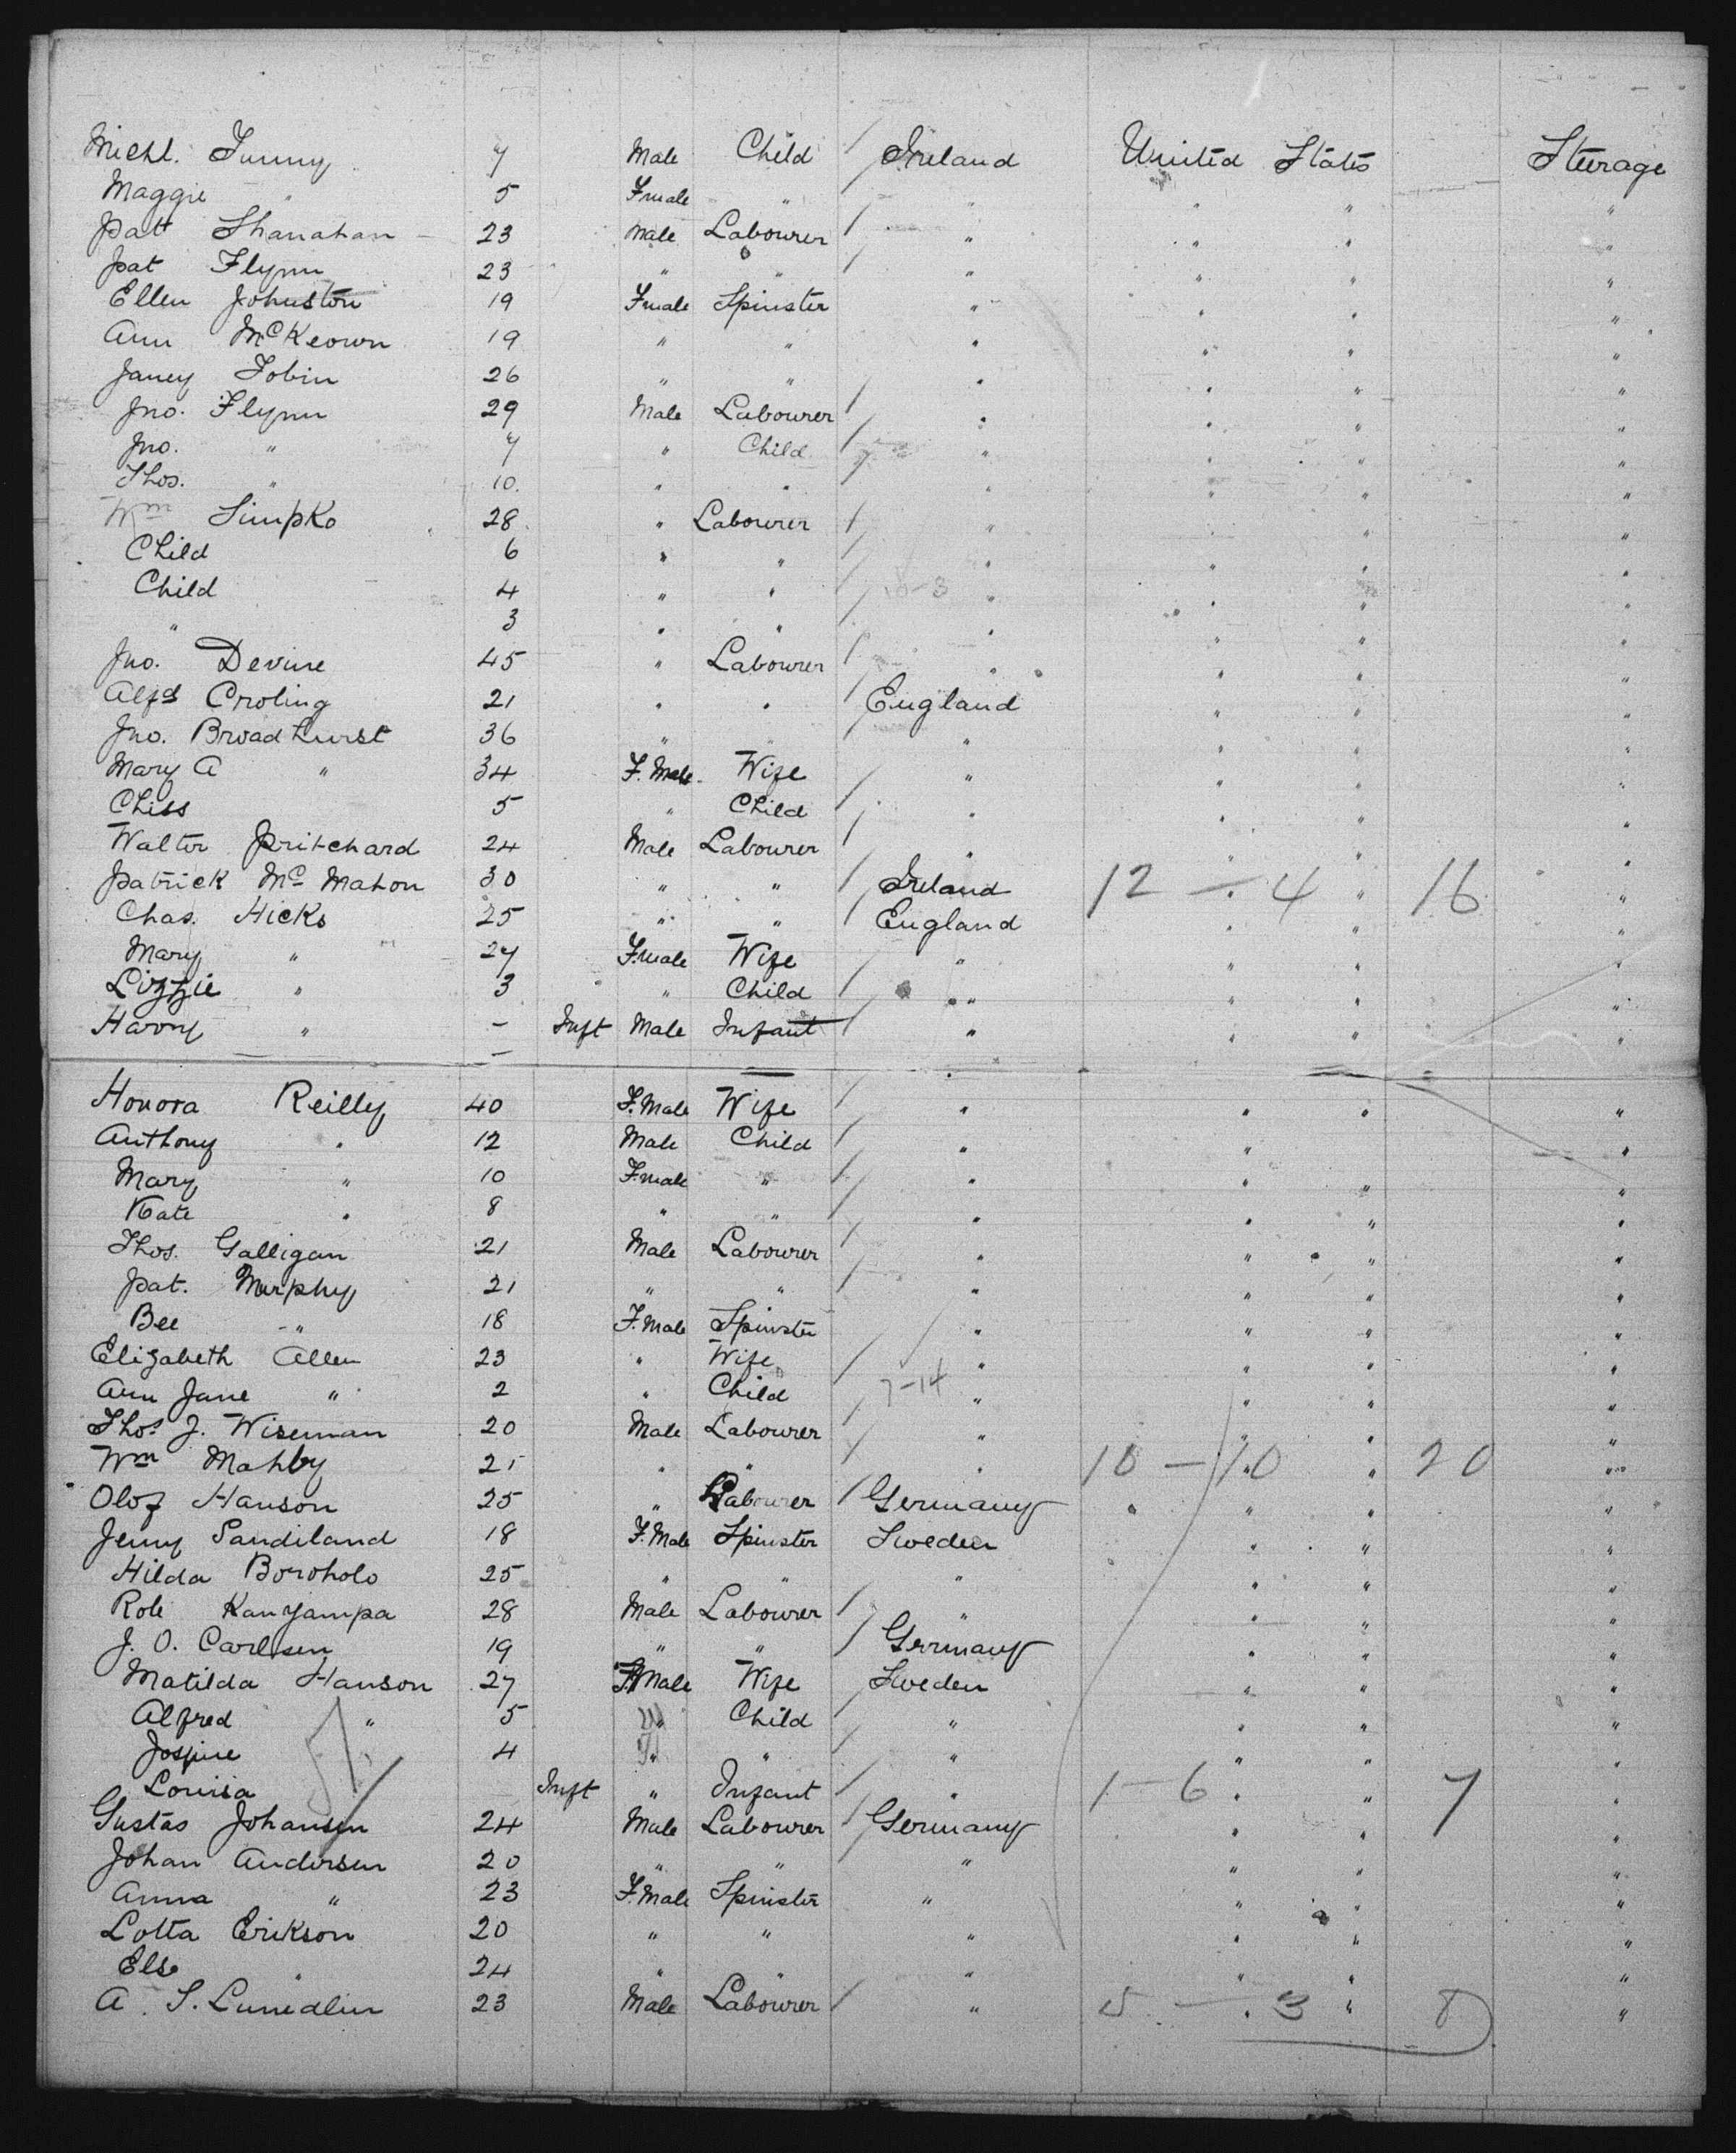 Michl. Funny 7 Male Child Ireland United States Steerage
Maggie " 5 Fmale " " " " "
Pat Shanahan 23 Male Labourer " " " "
Pat Flynn 23 " " " " " "
Ellen Johnston 19 Fmale Spinster " " " "
Ann McKeown 19 " " " " " "
Janey Tobin 26 " " " " " "
Jno. Flynn 29 Male Labourer " " " "
Jno. " 7 " Child " " " "
Thos. " 10. " " " " " "
Wm Simpko 28 " Labourer " " " "
Child 6 " " " " " "
Child 4 " " 10-3 " " " "
" 3 " " " " " "
Jno. Devine 45 " Labourer " " " "
Alfd Croling 21 " " England " " "
Jno. Broadhurst 36 " " " " " "
Mary A " 34 F. Male Wife " " " "
Chiss 5 " Child " " " "
Walter Pritchard 24 Male Labourer " " " "
Patrick Mc Mahon 30 " " Ireland 12 - 4 " 16 "
Chas. Hicks 25 " " England " " "
Mary " 27 F.male Wife " " " "
Lizzie " 3 " Child " " " "
Harry " - Inft Male Infant " " " "
Honora Reilly 40 F.Male Wife " " " "
Anthony " 12 Male Child " " "
Mary " 10 F.male " " " " "
Kate " 8 " " " " " "
Thos. Galligan 21 Male Labourer " " " "
Pat. Murphy 21 " " " " " "
Bee " 18 F.Male Spinster " " " "
Elizabeth Allen 23 " Wife " " " "
Ann Jane " 2 " Child 7-14 " " " "
Thos. J. Wiseman 20 Male Labourer " " " "
Wm Mahby 21 " " " 10 - 10 " 20 "
Olof Hanson 25 " Labourer Germany " " " "
Jenny Sandiland 18 F.Male Spinster Sweden " " "
Hilda Boroholo 25 " " " " " "
Role Kanyampa 28 Male Labourer " " " "
J. O. Carlsen 19 " " Germany " " "
Matilda Hanson 27 F.Male Wife Sweden " " "
Alfred " 5 " Child " " " "
Josfine 4 " " " " " "
Louisa Inft " Infant " 1-6 " " 7 "
Gustas Johansen 24 Male Labourer Germany " " "
Johan Andersen 20 " " " " " "
Anna " 23 F.Male Spinster " " " "
Lotta Erikson 20 " " " " " "
Else " 24 " " " " " "
A. S. Lunedlin 23 Male Labourer " 5 - 3 " 8 "